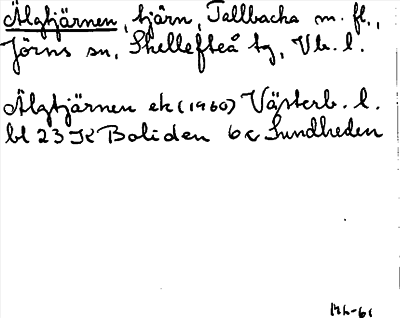 Älgtjärnen, tjärn, Tallbacka m. fl.,
Jörns sn, Skellefteå tg, Vb. l.
Älgtjärnen ek (1960) Västerb. l.
bl 23 K Boliden 6c Sundheden